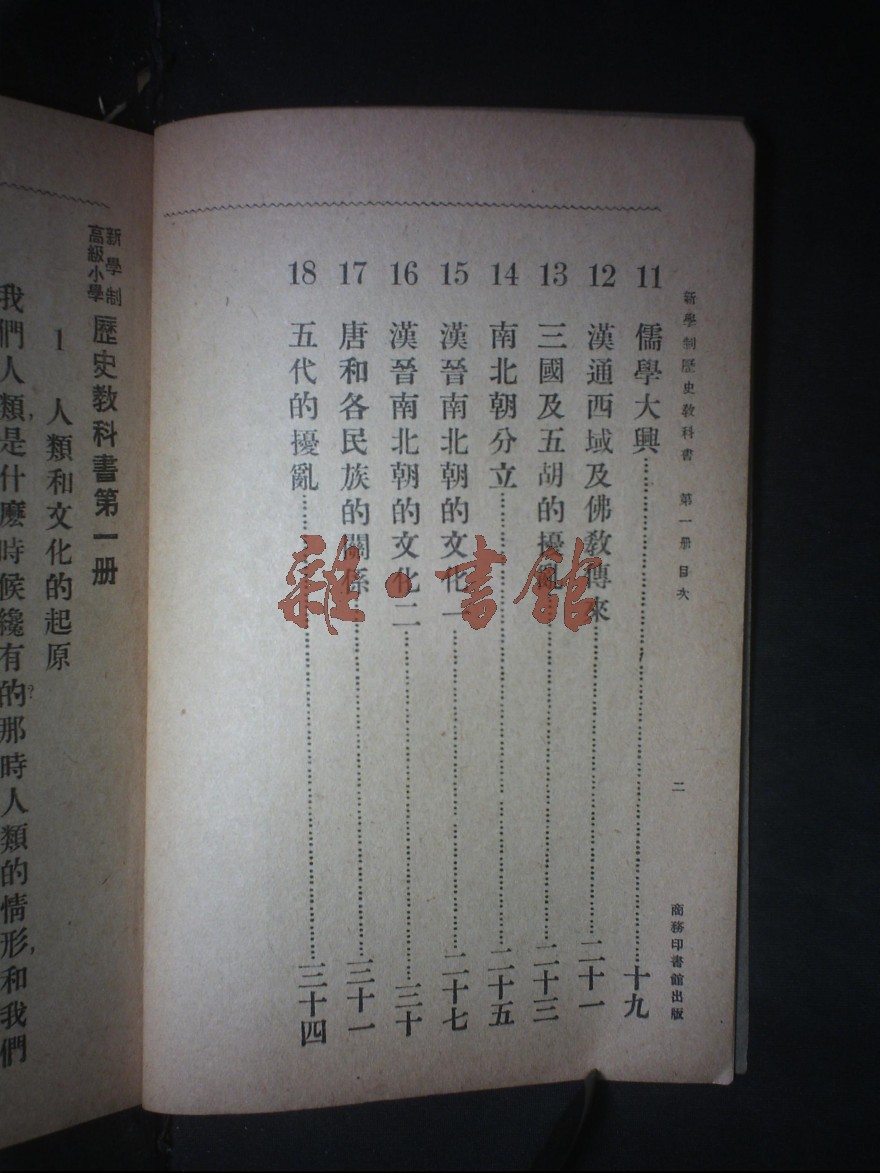 新學制歷史教科書 第一册 目次
二
商務印書館出版
11 儒學大興……十九
12 漢通西域及佛教傳來……二十一
13 三國及五胡的擾亂……二十三
14 南北朝分立……二十五
15 漢晉南北朝的文化一……二十七
16 漢晉南北朝的文化二……三十
17 唐和各民族的關係……三十一
18 五代的擾亂……三十四
新學制
高級小學
歷史教科書第一册
1 人類和文化的起原
我們人類,是什麽時候纔有的?那時人類的情形,和我們
雜·書館